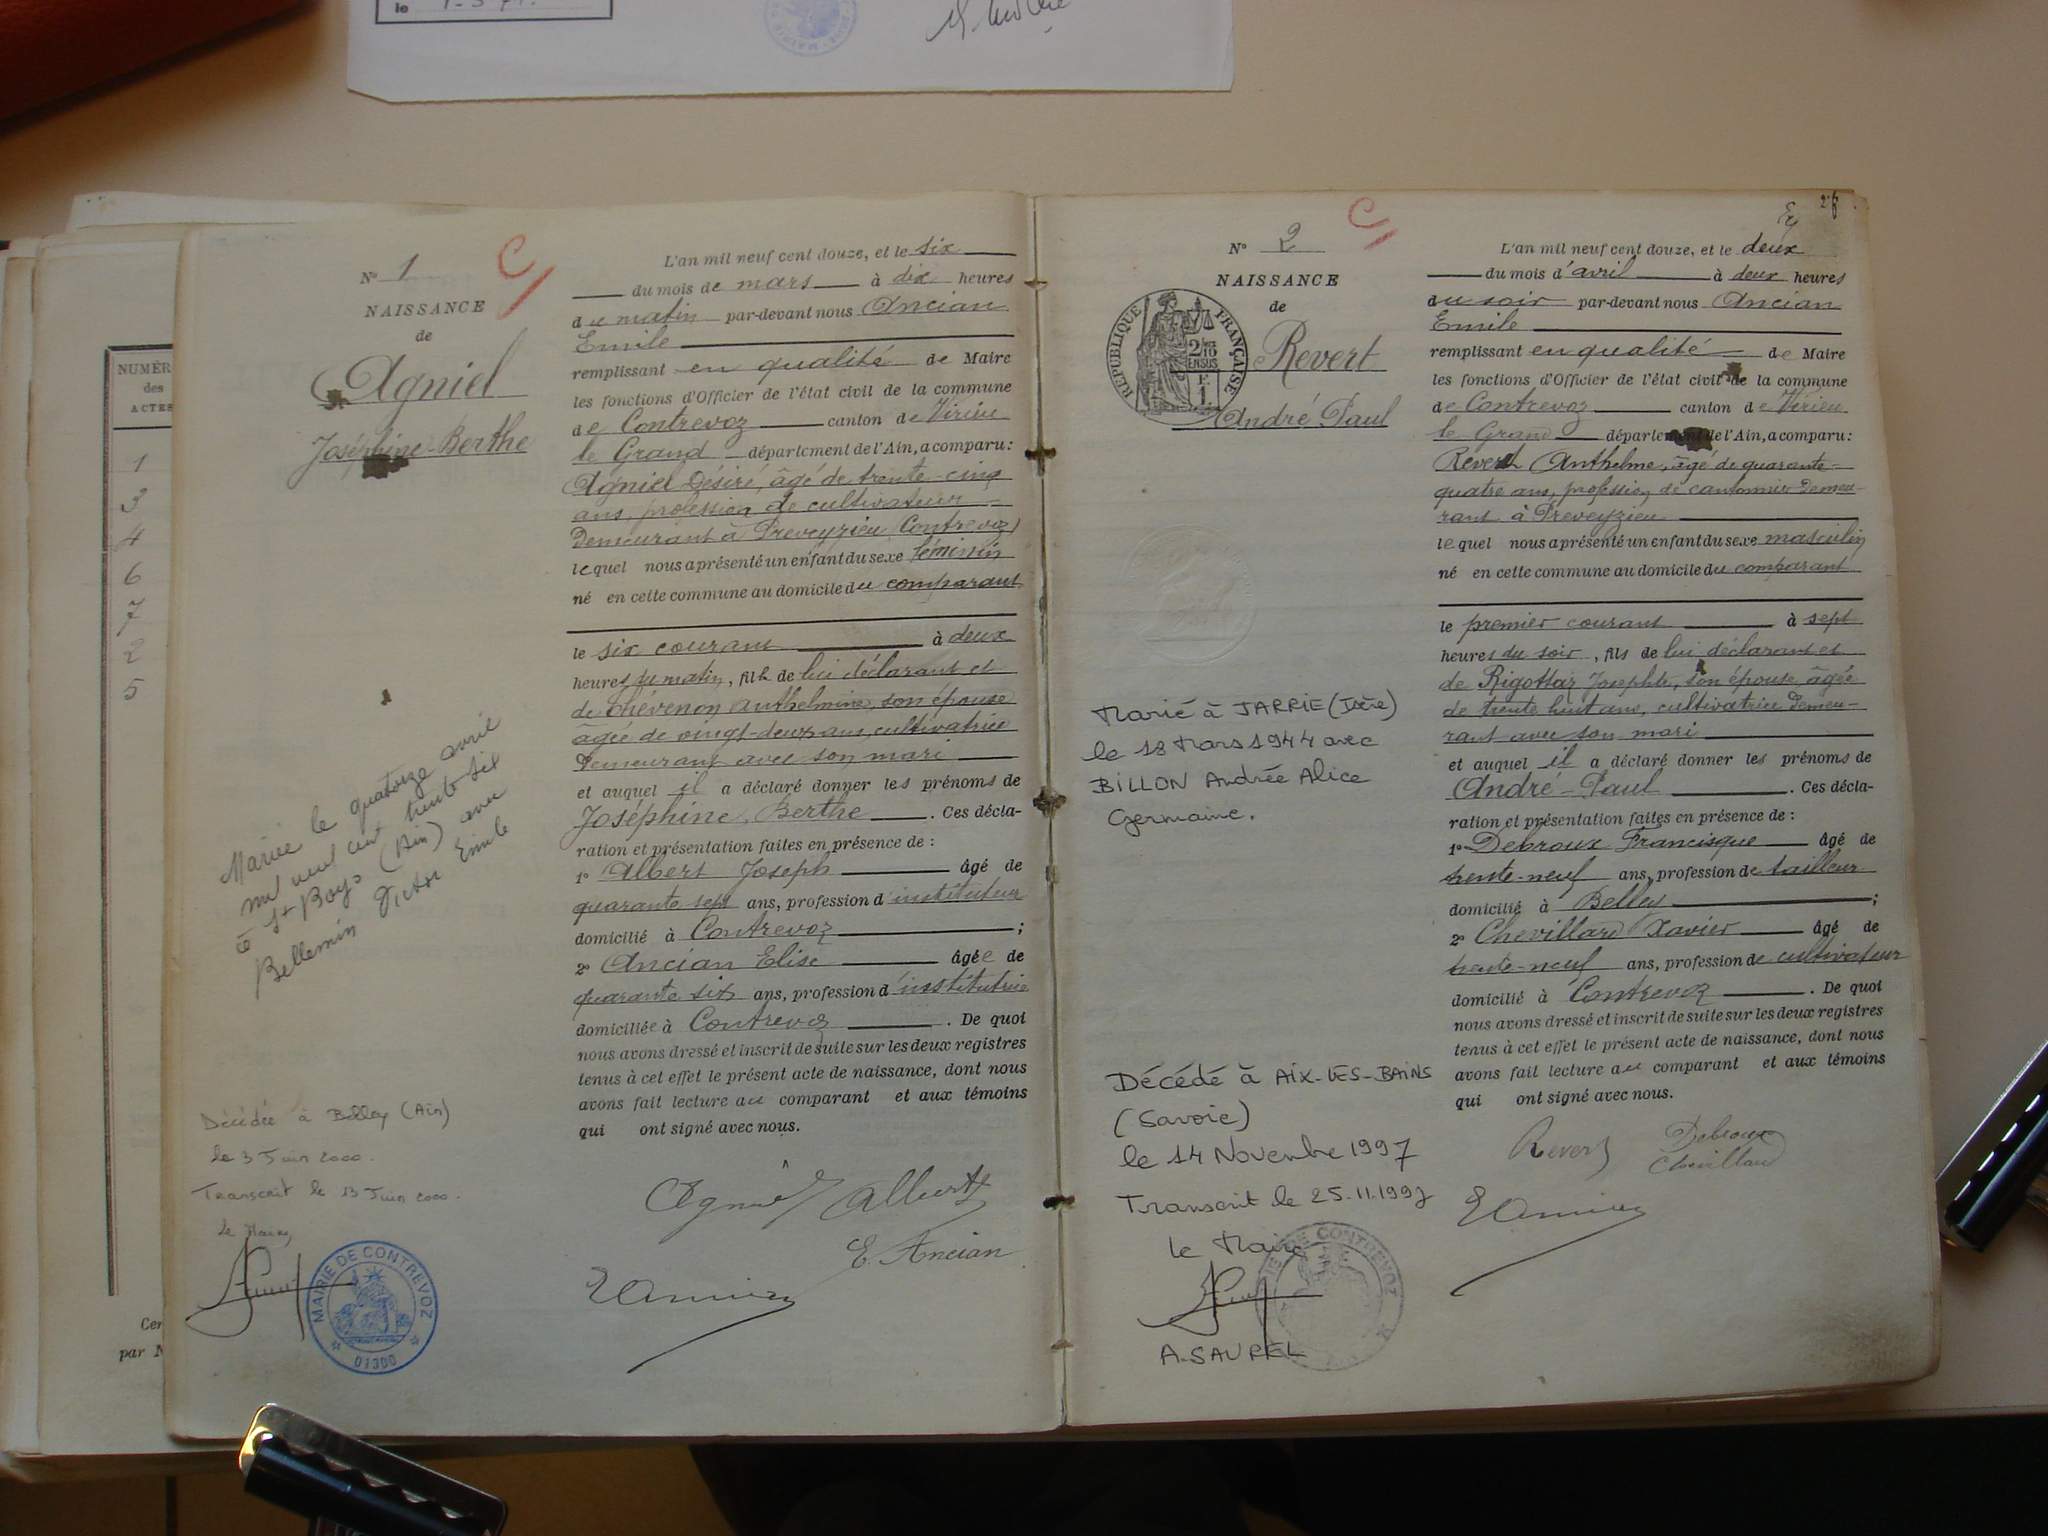 le 1-3-71.
NUMÉR
des
ACTES
1
3
4
6
7
2
5
Cer
par N
N° 1
NAISSANCE
de
Agniel
Joséphine-Berthe
Mariée le quatorze avril
mil neuf cent trente six
à St Bois (Ain) avec
Bellemin Victor Emile
Décédée à Belley (Ain)
le 3 Juin 2000.
Transcrit le 13 Juin 2000.
le Maire
MAIRIE DE CONTREVOZ
01300
L'an mil neuf cent douze, et le six
du mois de mars à dix heures
du matin par-devant nous Ancian
Emile
remplissant en qualité de Maire
les fonctions d'Officier de l'état civil de la commune
de Contrevoz canton de Virieu
le Grand département de l'Ain, a comparu:
Agniel Désiré, âgé de trente-cinq
ans, profession de cultivateur
Demeurant à Preveyzieu (Contrevoz)
lequel nous a présenté un enfant du sexe féminin
né en cette commune au domicile du comparant
le six courant à deux
heures du matin, fille de lui déclarant et
de Chévenon Anthelmine, son épouse
âgée de vingt-deux ans, cultivatrice
Demeurant avec son mari
et auquel il a déclaré donner les prénoms de
Joséphine, Berthe. Ces décla-
ration et présentation faites en présence de :
1° Albert Joseph âgé de
quarante sept ans, profession d'instituteur
domicilié à Contrevoz ;
2° Ancian Elise âgée de
quarante six ans, profession d'institutrice
domiciliée à Contrevoz. De quoi
nous avons dressé et inscrit de suite sur les deux registres
tenus à cet effet le présent acte de naissance, dont nous
avons fait lecture au comparant et aux témoins
qui ont signé avec nous.
Agniel Albert
E. Ancian
E Ancian
N° 2
NAISSANCE
de
RÉPUBLIQUE FRANÇAISE
2/10
EN SUS
F.
1.
Revert
André Paul
Marié à JARRIE (Isère)
le 18 Mars 1944 avec
BILLON Andrée Alice
Germaine.
Décédé à AIX-LES-BAINS
(Savoie)
le 14 Novembre 1997
Transcrit le 25.11.1997
le Maire
MAIRIE DE CONTREVOZ
A. SAUREL
L'an mil neuf cent douze, et le deux
du mois d'avril à deux heures
du soir par-devant nous Ancian
Emile
remplissant en qualité de Maire
les fonctions d'Officier de l'état civil de la commune
de Contrevoz canton de Virieu
le Grand département de l'Ain, a comparu:
Revert Anthelme, âgé de quarante-
quatre ans, profession de cantonnier Demeu-
rant à Preveyzieu
lequel nous a présenté un enfant du sexe masculin
né en cette commune au domicile du comparant
le premier courant à sept
heures du soir, fils de lui déclarant et
de Rigottaz Josephte, son épouse, âgée
de trente huit ans, cultivatrice Demeu-
rant avec son mari
et auquel il a déclaré donner les prénoms de
André-Paul. Ces décla-
ration et présentation faites en présence de :
1° Debroux Francisque âgé de
trente-neuf ans, profession de tailleur
domicilié à Belley ;
2° Chevillard Xavier âgé de
trente-neuf ans, profession de cultivateur
domicilié à Contrevoz. De quoi
nous avons dressé et inscrit de suite sur les deux registres
tenus à cet effet le présent acte de naissance, dont nous
avons fait lecture au comparant et aux témoins
qui ont signé avec nous.
Revert Debroux
Chevillard
E Ancian